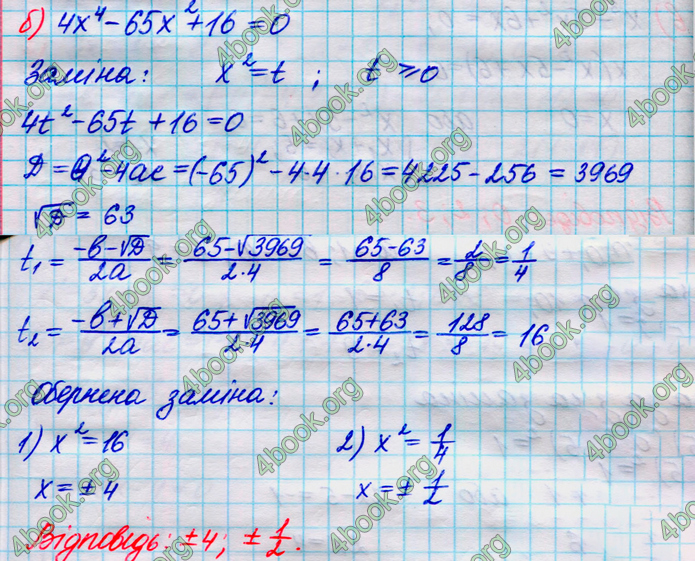 б) 4x⁴ - 65x² + 16 = 0
Заміна: x² = t ; t ⩾ 0
4t² - 65t + 16 = 0
D = b² - 4ac = (-65)² - 4·4·16 = 4225 - 256 = 3969
√D = 63
t₁ = (-b - √D)/(2a) = (65 - √3969)/(2·4) = (65 - 63)/8 = 2/8 = 1/4
t₂ = (-b + √D)/(2a) = (65 + √3969)/(2·4) = (65 + 63)/(2·4) = 128/8 = 16
Обернена заміна:
1) x² = 16 2) x² = 1/4
x = ± 4 x = ± 1/2
Відповідь: ±4; ± 1/2.
4book.org